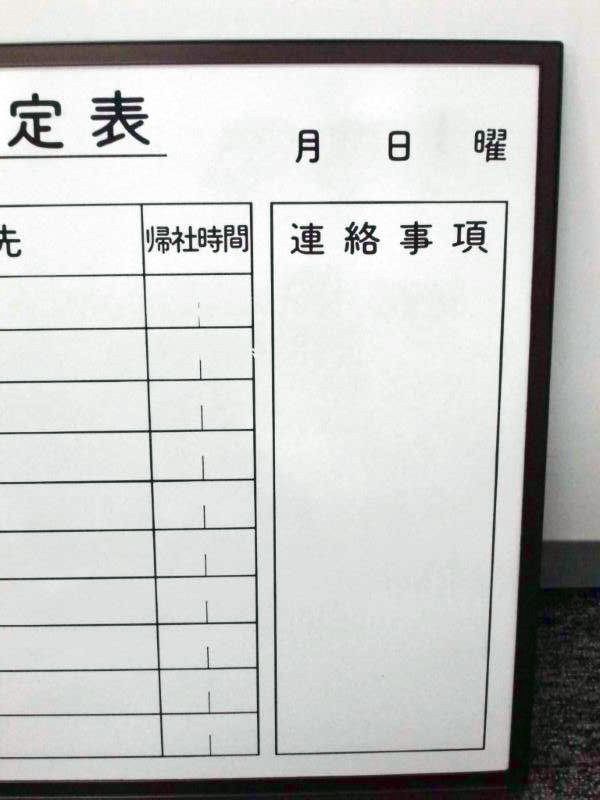 定表
月 日 曜
先 帰社時間 連絡事項